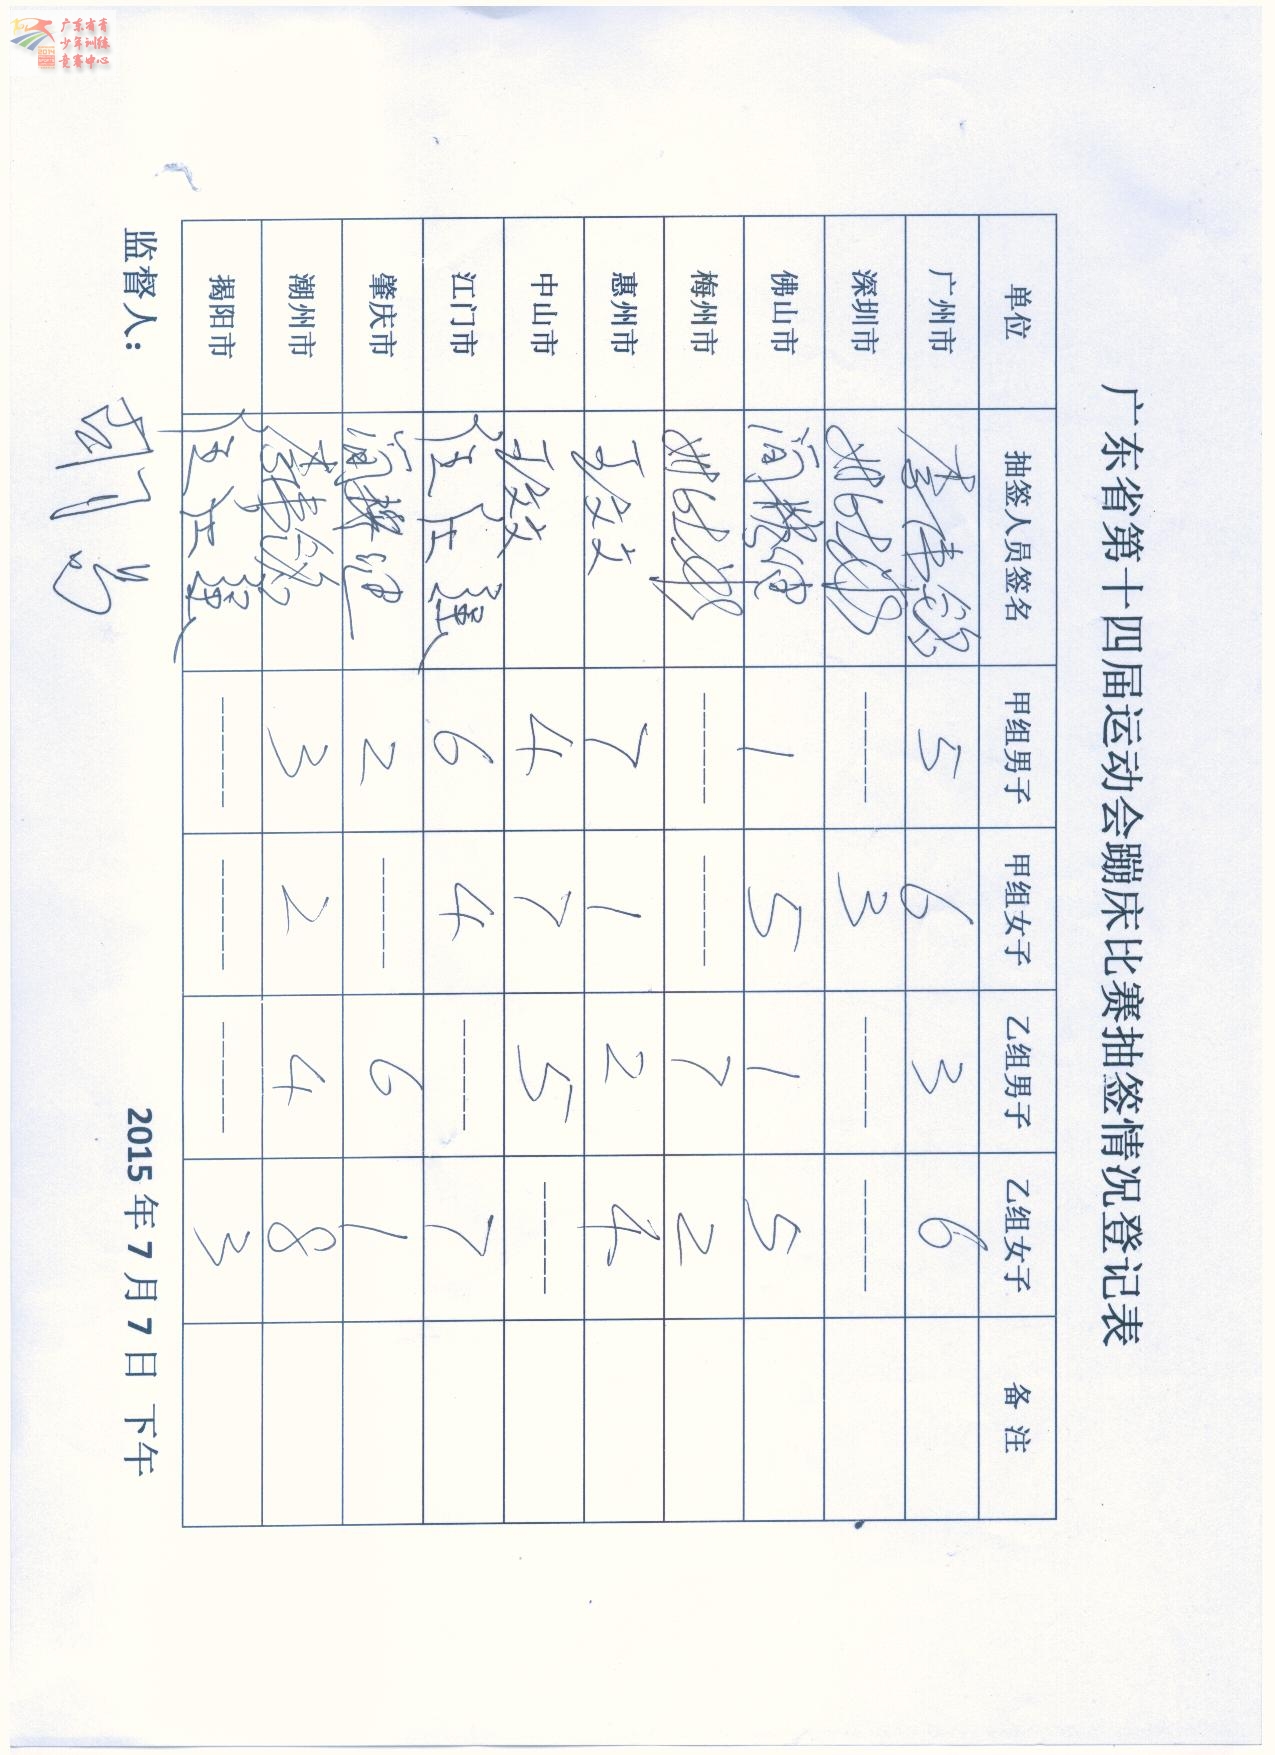 广东省青
少年训练
竞赛中心
广东省第十四届运动会蹦床比赛抽签情况登记表
单位 抽签人员签名 甲组男子 甲组女子 乙组男子 乙组女子 备 注
广州市 5 6 3 6
深圳市 ------ 3 ------ ------
佛山市 1 5 1 5
梅州市 ------ ------ 7 2
惠州市 7 1 2 4
中山市 4 7 5 ------
江门市 6 4 ------ 7
肇庆市 2 ------ 6 1
潮州市 3 2 4 8
揭阳市 ------ ------ ------ 3
监督人: 2015年7月7日 下午